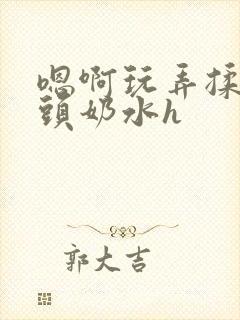 嗯啊玩弄揉
頭奶水h
郭大吉